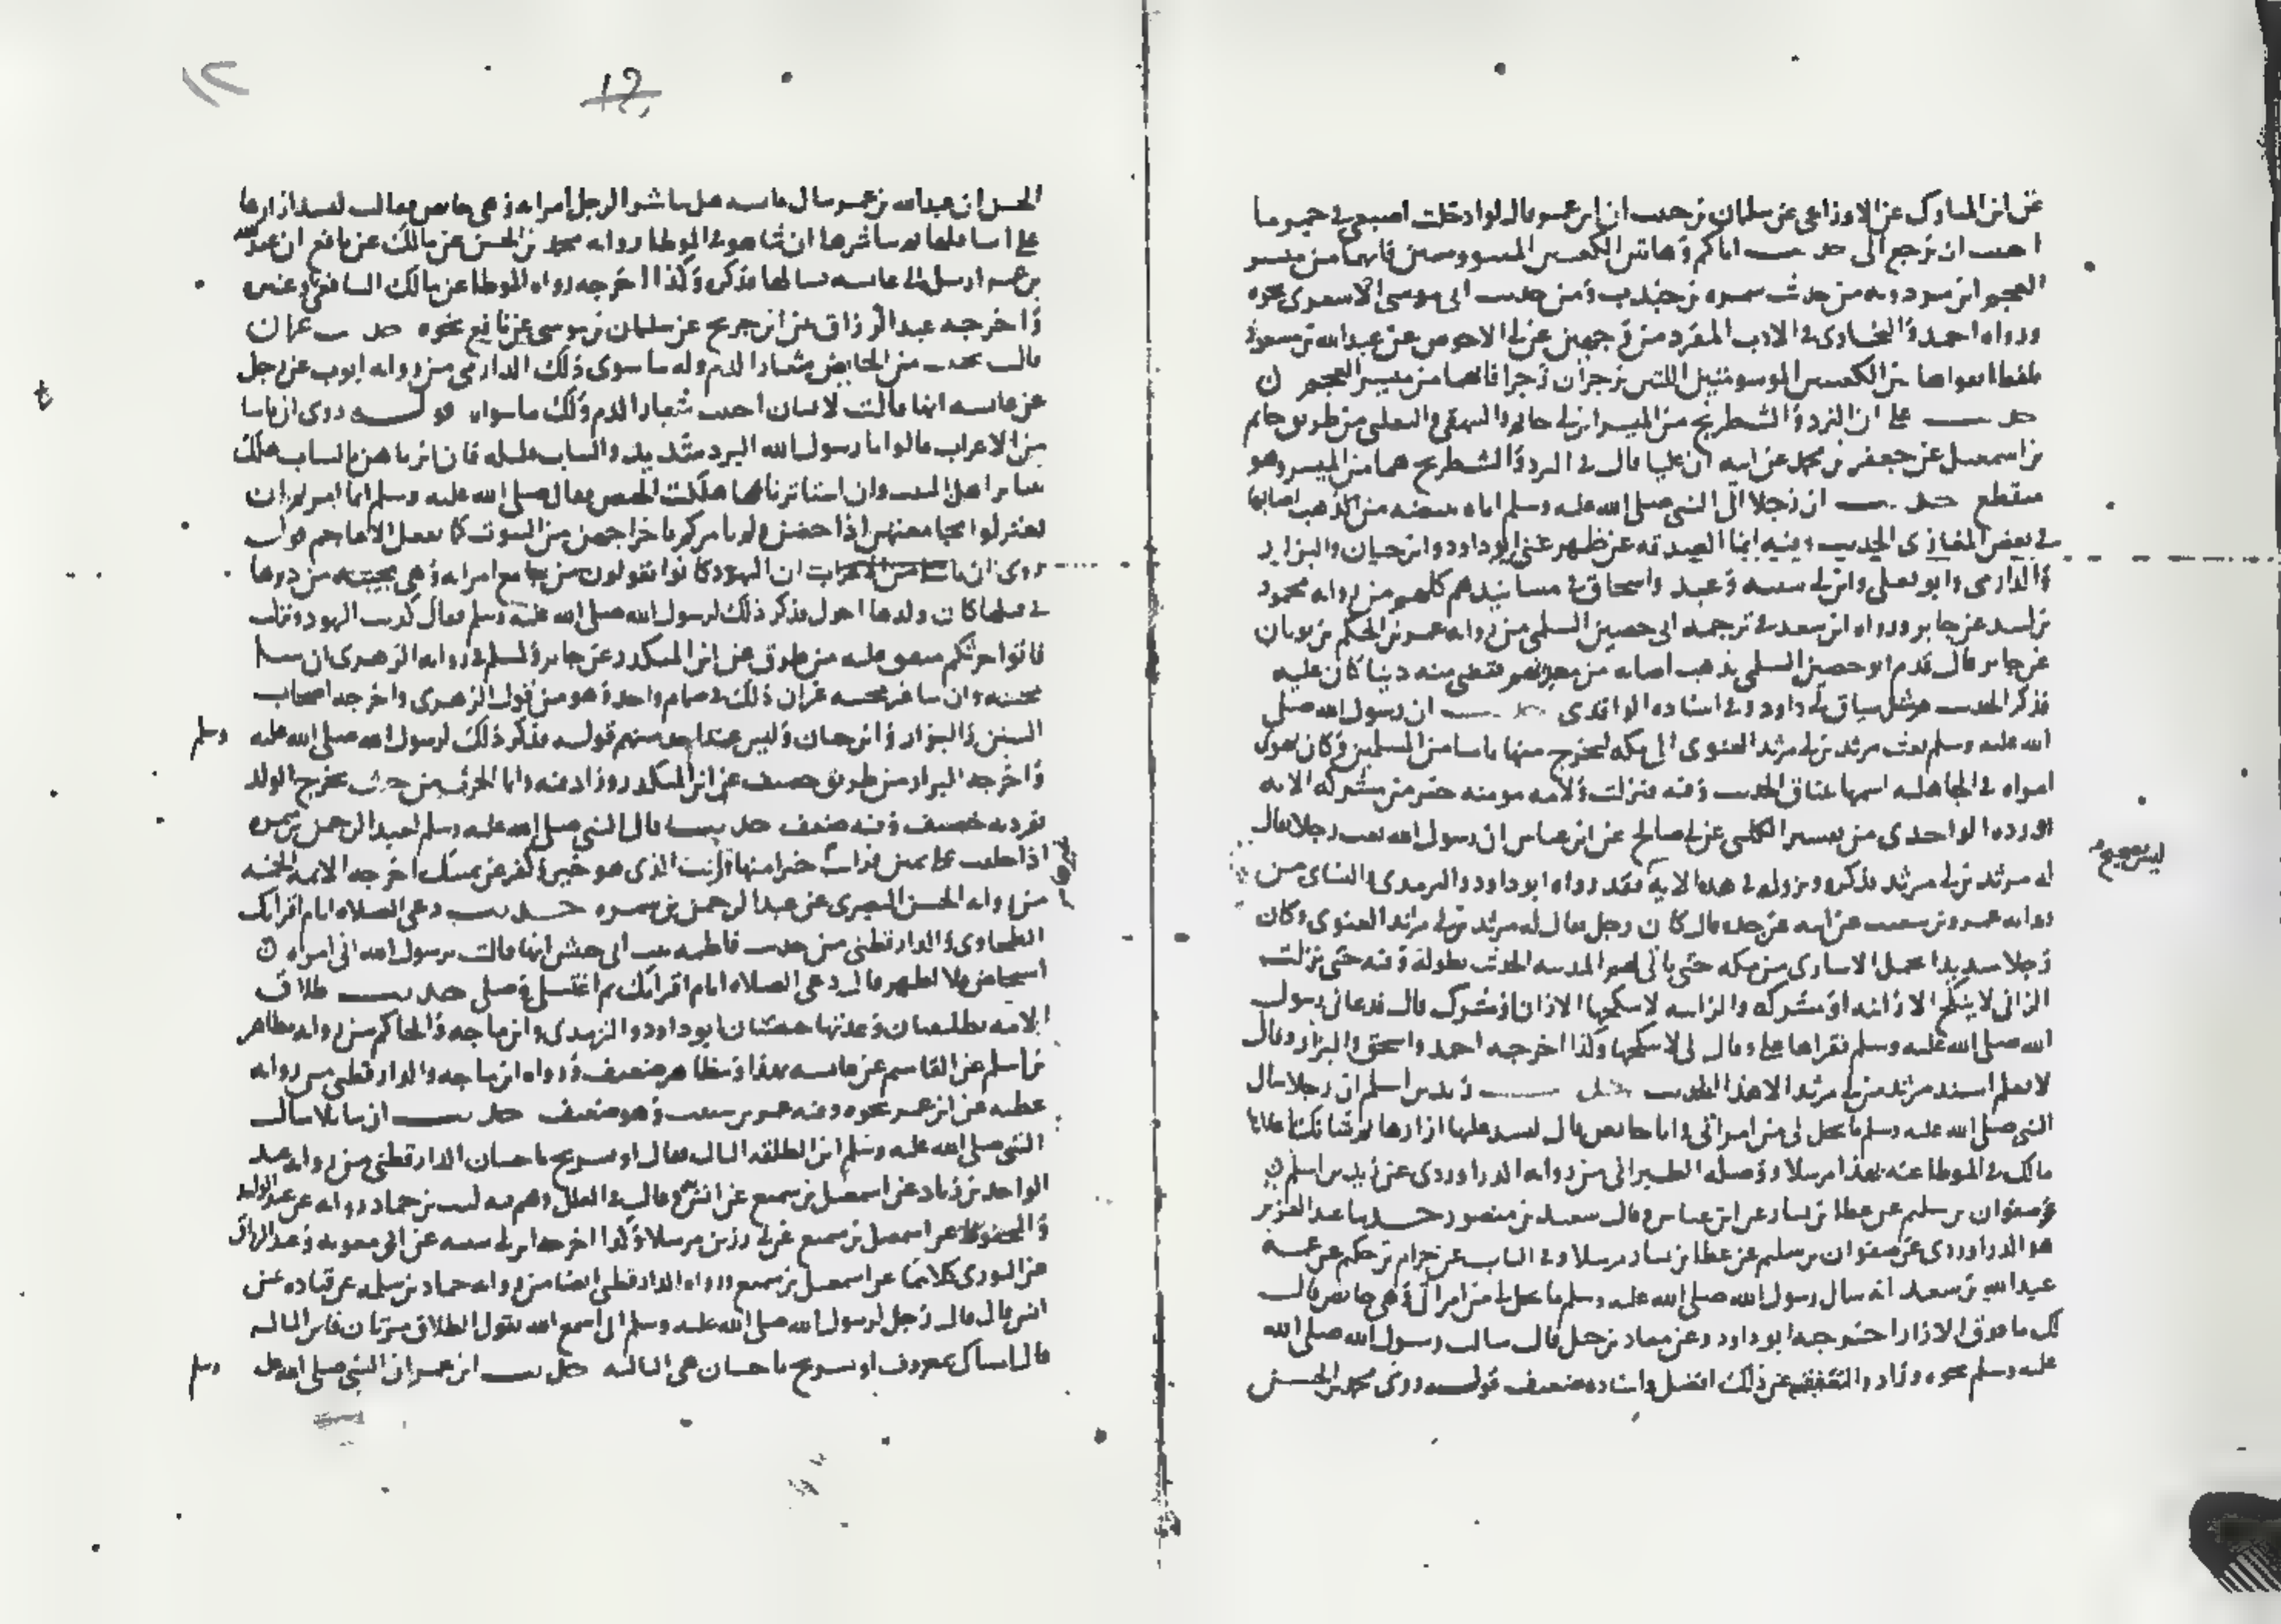 عن ابن المبارك عن الاوزاعي عن سليمان بن حبيب ان ابن عمر قال لو ادخلت اصبعي في خمر ما
احببت ان ترجع الى حديث اياكم وهاتين الكعبتين فانهما من ميسر
العجم ابن مردويه من حديث سمرة بن جندب ومن حديث ابي موسى الاشعري نحوه
ورواه احمد والبخاري في الادب المفرد من وجهين عن ابي الاحوص عن عبد الله بن مسعود
بلفظ اتقوا هاتين الكعبتين الموسومتين اللتين تزجران زجرا فانهما من ميسر العجم
حديث علي ان النرد والشطرنج من الميسر ابن ابي حاتم والبيهقي والثعلبي من طريق حاتم
بن اسمعيل عن جعفر بن محمد عن ابيه ان عليا قال في النرد والشطرنج هما من الميسر وهو
منقطع حديث ان رجلا اتى النبي صلى الله عليه وسلم ببيضة من ذهب اصابها
في بعض المغازي الحديث وفيه ايما الصدقة عن ظهر غنى ابو داود وابن حبان والبزار
والدارمي وابو يعلى وابن ابي شيبة وعبد واسحاق في مسانيدهم كلهم من رواية محمود
بن لبيد عن جابر ورواه ابن سعد في ترجمة ابي حصين السلمي من رواية عمر بن الحكم بن ثوبان
عن جابر قال قدم ابو حصين السلمي بذهب اصابه من معدنهم فقضى منه دينا كان عليه
فذكر الحديث مثل سياق ابي داود وفي اسناده الواقدي حديث ان رسول الله صلى
الله عليه وسلم بعث مرثد بن ابي مرثد الغنوي الى مكة ليخرج منها ناسا من المسلمين وكان يهوى
امراة في الجاهلية اسمها عناق الحديث وفيه فنزلت ولامة مومنة خير من مشركة الاية
اورده الواحدي من تفسير الكلبي عن ابي صالح عن ابن عباس ان رسول الله بعث رجلا يقال
له مرثد بن ابي مرثد فذكره ونزوله في هذه الاية فقد رواه ابو داود والترمذي والنساي من
رواية عمرو بن شعيب عن ابيه عن جده قال كان رجل يقال له مرثد بن ابي مرثد الغنوي وكان
رجلا شديدا يحمل الاسارى من مكة حتى ياتي بهم المدينة الحديث بطوله وفيه حتى نزلت
الزاني لا ينكح الا زانية او مشركة والزانية لا ينكحها الا زان او مشرك قال فدعاني رسول
الله صلى الله عليه وسلم فقراها علي وقال لي لا تنكحها وكذا اخرجه احمد واسحق والبزار وقال
لا نعلم اسند مرثد بن ابي مرثد الا هذا الحديث حديث زيد بن اسلم ان رجلا سال
النبي صلى الله عليه وسلم ما يحل لي من امراتي وانا حايض قال لتشد عليها ازارها ثم شانك باعلاها
مالك في الموطا عنه بهذا مرسلا ووصله الطبراني من رواية الدراوردي عن زيد بن اسلم
وصفوان بن سليم عن عطا بن يسار عن ابن عباس وقال سعيد بن منصور حدثنا عبد العزيز
هو الدراوردي عن صفوان بن سليم عن عطا بن يسار مرسلا وفي الباب عن حزام بن حكيم عن عمه
عبد الله بن سعد انه سال رسول الله صلى الله عليه وسلم ما يحل لي من امراتي وهي حايض قال
لك ما فوق الازار اخرجه ابو داود وعن معاذ بن جبل قال سالت رسول الله صلى الله
عليه وسلم نحوه وزاد والتعفف عن ذلك افضل واسناده ضعيف قوله وروى محمد بن الحسن
١٢
الحسن ان عبد الله بن عمر سال عايشة هل يباشر الرجل امراته وهي حايض فقالت لتشد ازارها
على اسافلها ثم يباشرها ان شا هو في الموطا رواية محمد بن الحسن عن مالك عن نافع ان عبد الله
بن عمر ارسل الى عايشة يسالها فذكره وكذا اخرجه رواة الموطا عن مالك الشافعي وغيره
واخرجه عبد الرزاق عن ابن جريج عن سليمان بن موسى عن نافع نحوه حديث
قالت يجتنب من الحايض شعار الدم وله ما سوى ذلك الدارمي من رواية ايوب عن رجل
عن عايشة انها قالت لانسان اجتنب شعار الدم ولك ما سواه قوله روى ان ناسا
من الاعراب قالوا يا رسول الله البرد شديد والثياب قليلة فان اثرناهن بالثياب هلك
ساير اهل البيت وان استاثرنا بها هلكت الحيض فقال صلى الله عليه وسلم انما امرتم ان
تعتزلوا مجامعتهن اذا حضن ولم يامركم باخراجهن من البيوت كما تفعل الاعاجم قوله
روى ان اليهود كانوا يقولون من جامع امراته وهي مجبية من دبرها
في قبلها كان ولدها احول فذكر ذلك لرسول الله صلى الله عليه وسلم فقال كذبت اليهود ونزلت
فاتوا حرثكم متفق عليه من طرق عن ابن المنكدر عن جابر ولمسلم في رواية الزهري ان شا
مجبية وان شا غير مجبية غير ان ذلك في صمام واحد وهو من قول الزهري واخرجه اصحاب
السنن والبزار وابن حبان وليس عند احد منهم قوله فذكر ذلك لرسول الله صلى الله عليه وسلم
واخرجه البزار من طريق خصيف عن ابن المنكدر وزاد فيه وانما الحرث من حيث يخرج الولد
تفرد به خصيف وفيه ضعف حديث قال النبي صلى الله عليه وسلم لعبد الرحمن بن سمرة
اذا حلفت على يمين فرايت خيرا منها فات الذي هو خير وكفر عن يمينك اخرجه الايمة الخمسة
من رواية الحسن البصري عن عبد الرحمن بن سمرة حديث دعي الصلاة ايام اقرايك
الطحاوي والدارقطني من حديث فاطمة بنت ابي حبيش انها قالت يرسول الله اني امراة
استحاض فلا اطهر قال دعي الصلاة ايام اقرايك ثم اغتسلي وصلي حديث طلاق
الامة تطليقتان وعدتها حيضتان ابو داود والترمذي وابن ماجه والحاكم من رواية مظاهر
بن اسلم عن القاسم عن عايشة بهذا ومظاهر ضعيف ورواه ابن ماجه والدارقطني من رواية
عطية عن ابن عمر نحوه وفيه عمر بن شبيب وهو ضعيف حديث ان سايلا سال
النبي صلى الله عليه وسلم اين الطلقة الثالثة فقال او تسريح باحسان الدارقطني من رواية عبد
الواحد بن زياد عن اسمعيل بن سميع عن انس وقال في العلل وهم فيه ليث بن حماد رواية عن عبد الواحد
والمحفوظ عن اسمعيل بن سميع عن ابي رزين مرسلا وكذا اخرجه ابن ابي شيبة عن ابي معوية وعبد الرزاق
عن الثوري كلاهما عن اسمعيل بن سميع ورواه الدارقطني ايضا من رواية حماد بن سلمة عن قتادة عن
انس قال قال رجل لرسول الله صلى الله عليه وسلم اني اسمع الله يقول الطلاق مرتان فاين الثالثة
قال امساك بمعروف او تسريح باحسان هي الثالثة حديث ابن عمر ان النبي صلى الله عليه وسلم